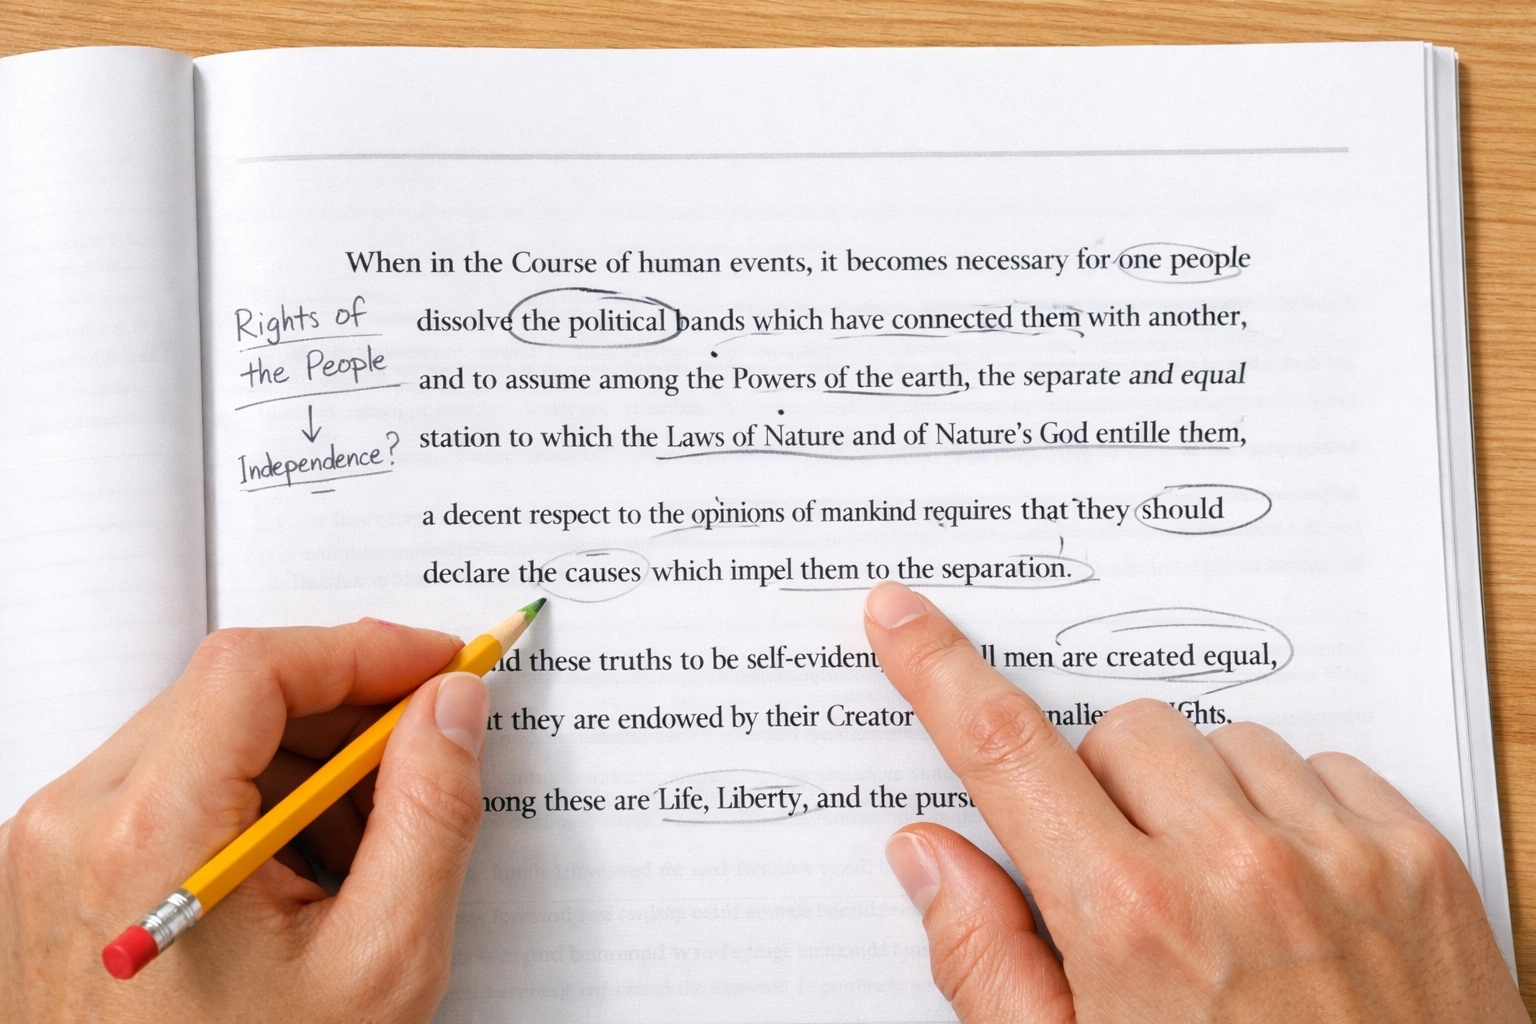 When in the Course of human events, it becomes necessary for one people
dissolve the political bands which have connected them with another,
and to assume among the Powers of the earth, the separate and equal
station to which the Laws of Nature and of Nature's God entille them,
a decent respect to the opinions of mankind requires that they should
declare the causes which impel them to the separation.
these truths to be self-evident, men are created equal,
they are endowed by their Creator
these are Life, Liberty, and the
Rights of
the People
↓
Independence?